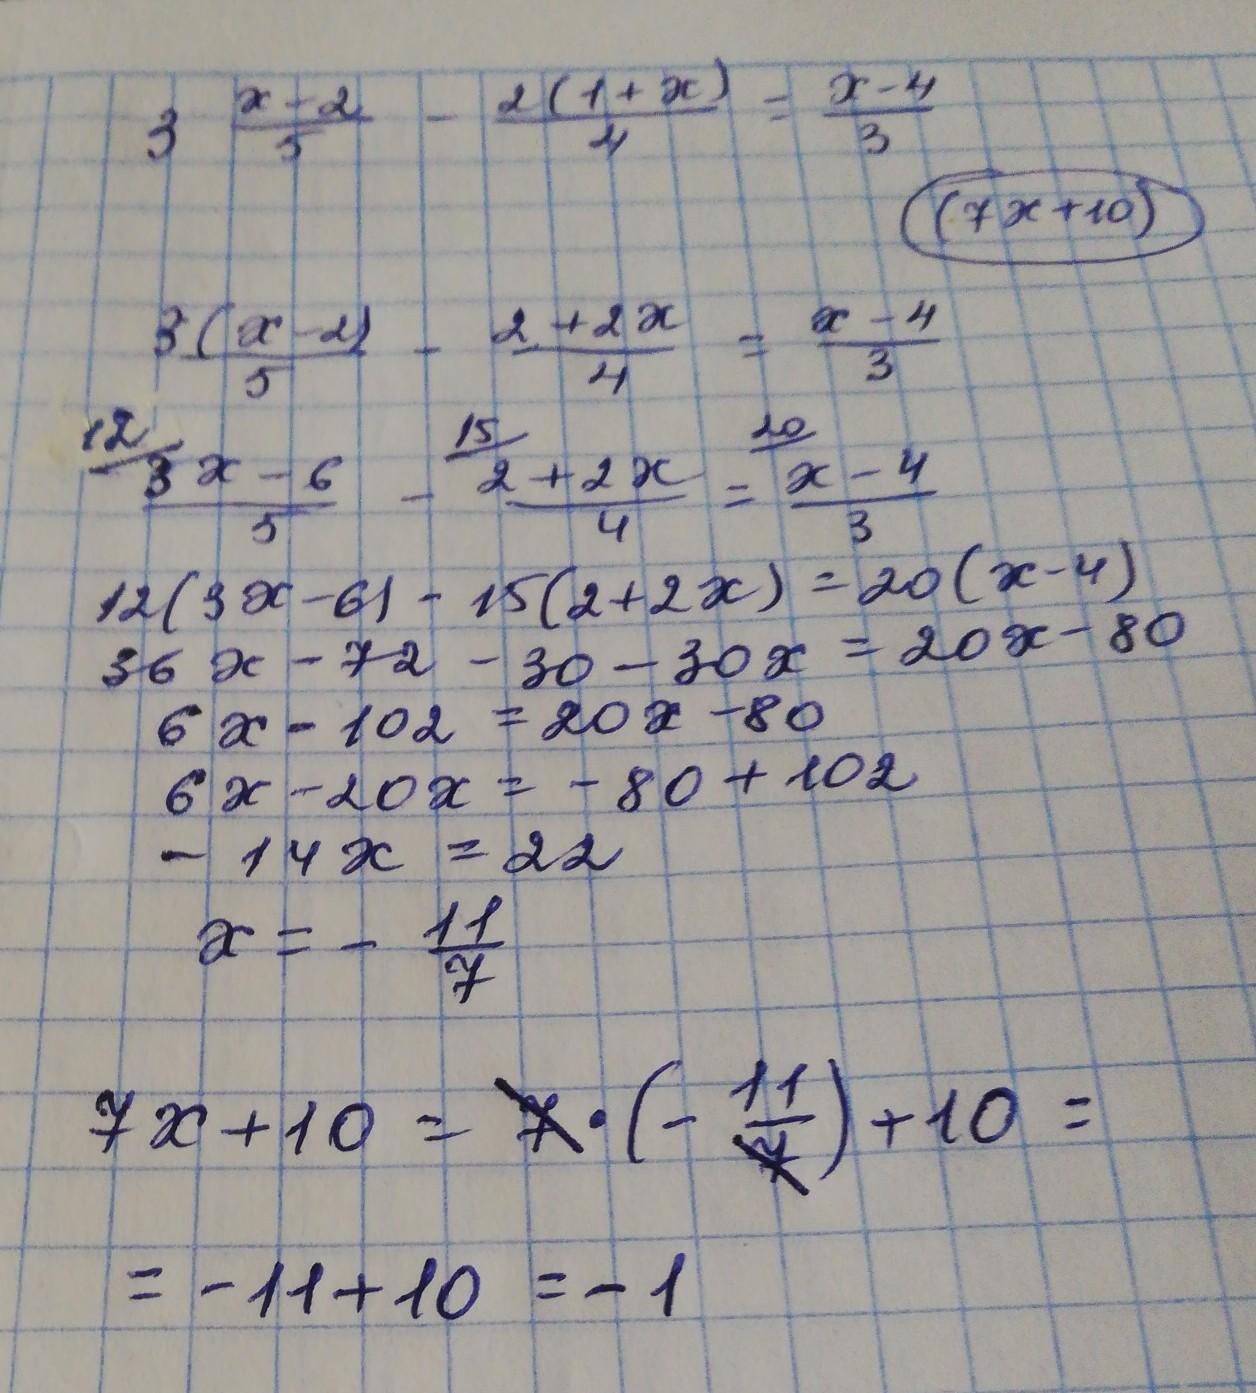 3 (x-2)/5 - 2(1+x)/4 = (x-4)/3
(7x+10)
3(x-2)/5 - (2+2x)/4 = (x-4)/3
12/ (3x-6)/5 - 15/ (2+2x)/4 = 20/ (x-4)/3
12(3x-6) - 15(2+2x) = 20(x-4)
36x - 72 - 30 - 30x = 20x - 80
6x - 102 = 20x - 80
6x - 20x = -80 + 102
-14x = 22
x = - 11/7
7x + 10 = 7 · (- 11/7) + 10 =
= -11 + 10 = -1